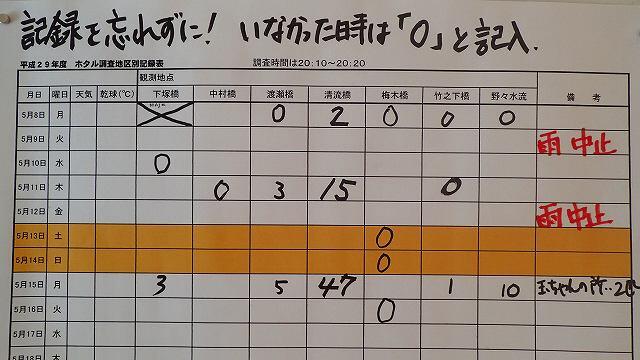 記録を忘れずに! いなかった時は「0」と記入.
平成29年度 ホタル調査地区別記録表 調査時間は20:10~20:20
観測地点
月日 曜日 天気 乾球(℃) 下塚橋 中村橋 渡瀬橋 清流橋 梅木橋 竹之下橋 野々水流 備 考
5月8日 月 0 2 0 0 0
5月9日 火 雨 中止
5月10日 水 0
5月11日 木 0 3 15 0
5月12日 金 雨 中止
5月13日 土 0
5月14日 日 0
5月15日 月 3 5 47 1 10 玉ちゃんの所‥2
5月16日 火 0
5月17日 水
5月18日 木